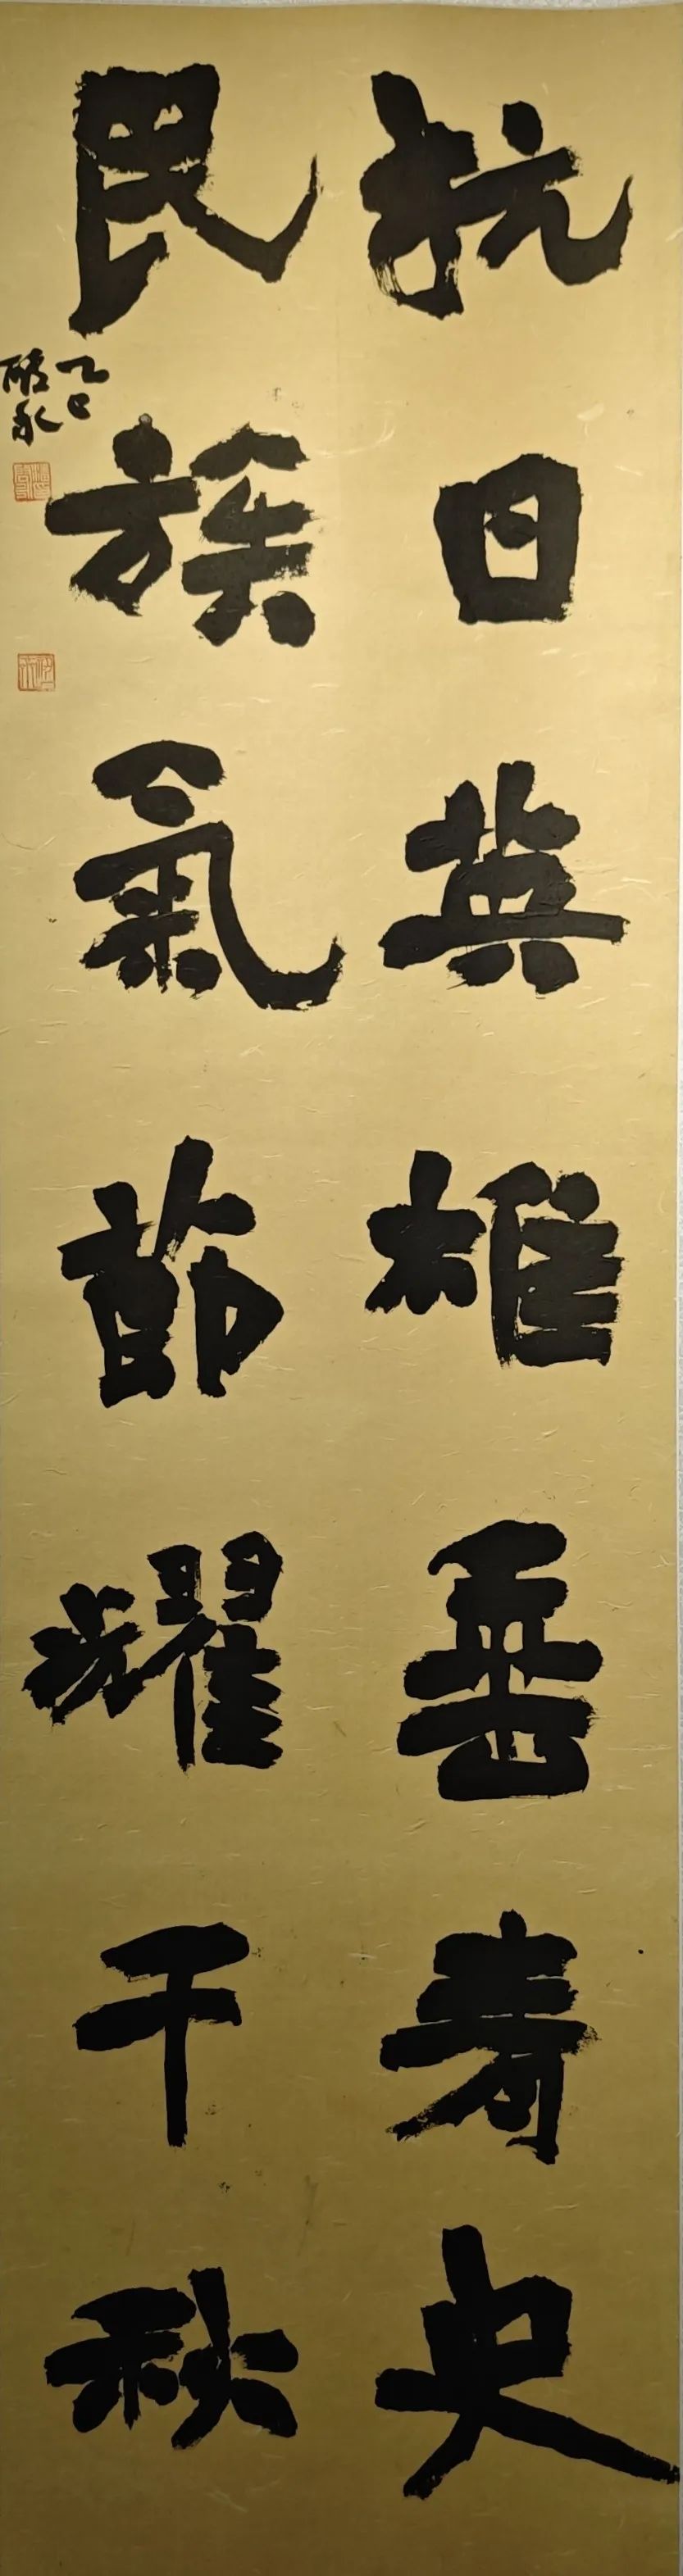 抗日英雄垂青史
民族氣節耀千秋
乙巳